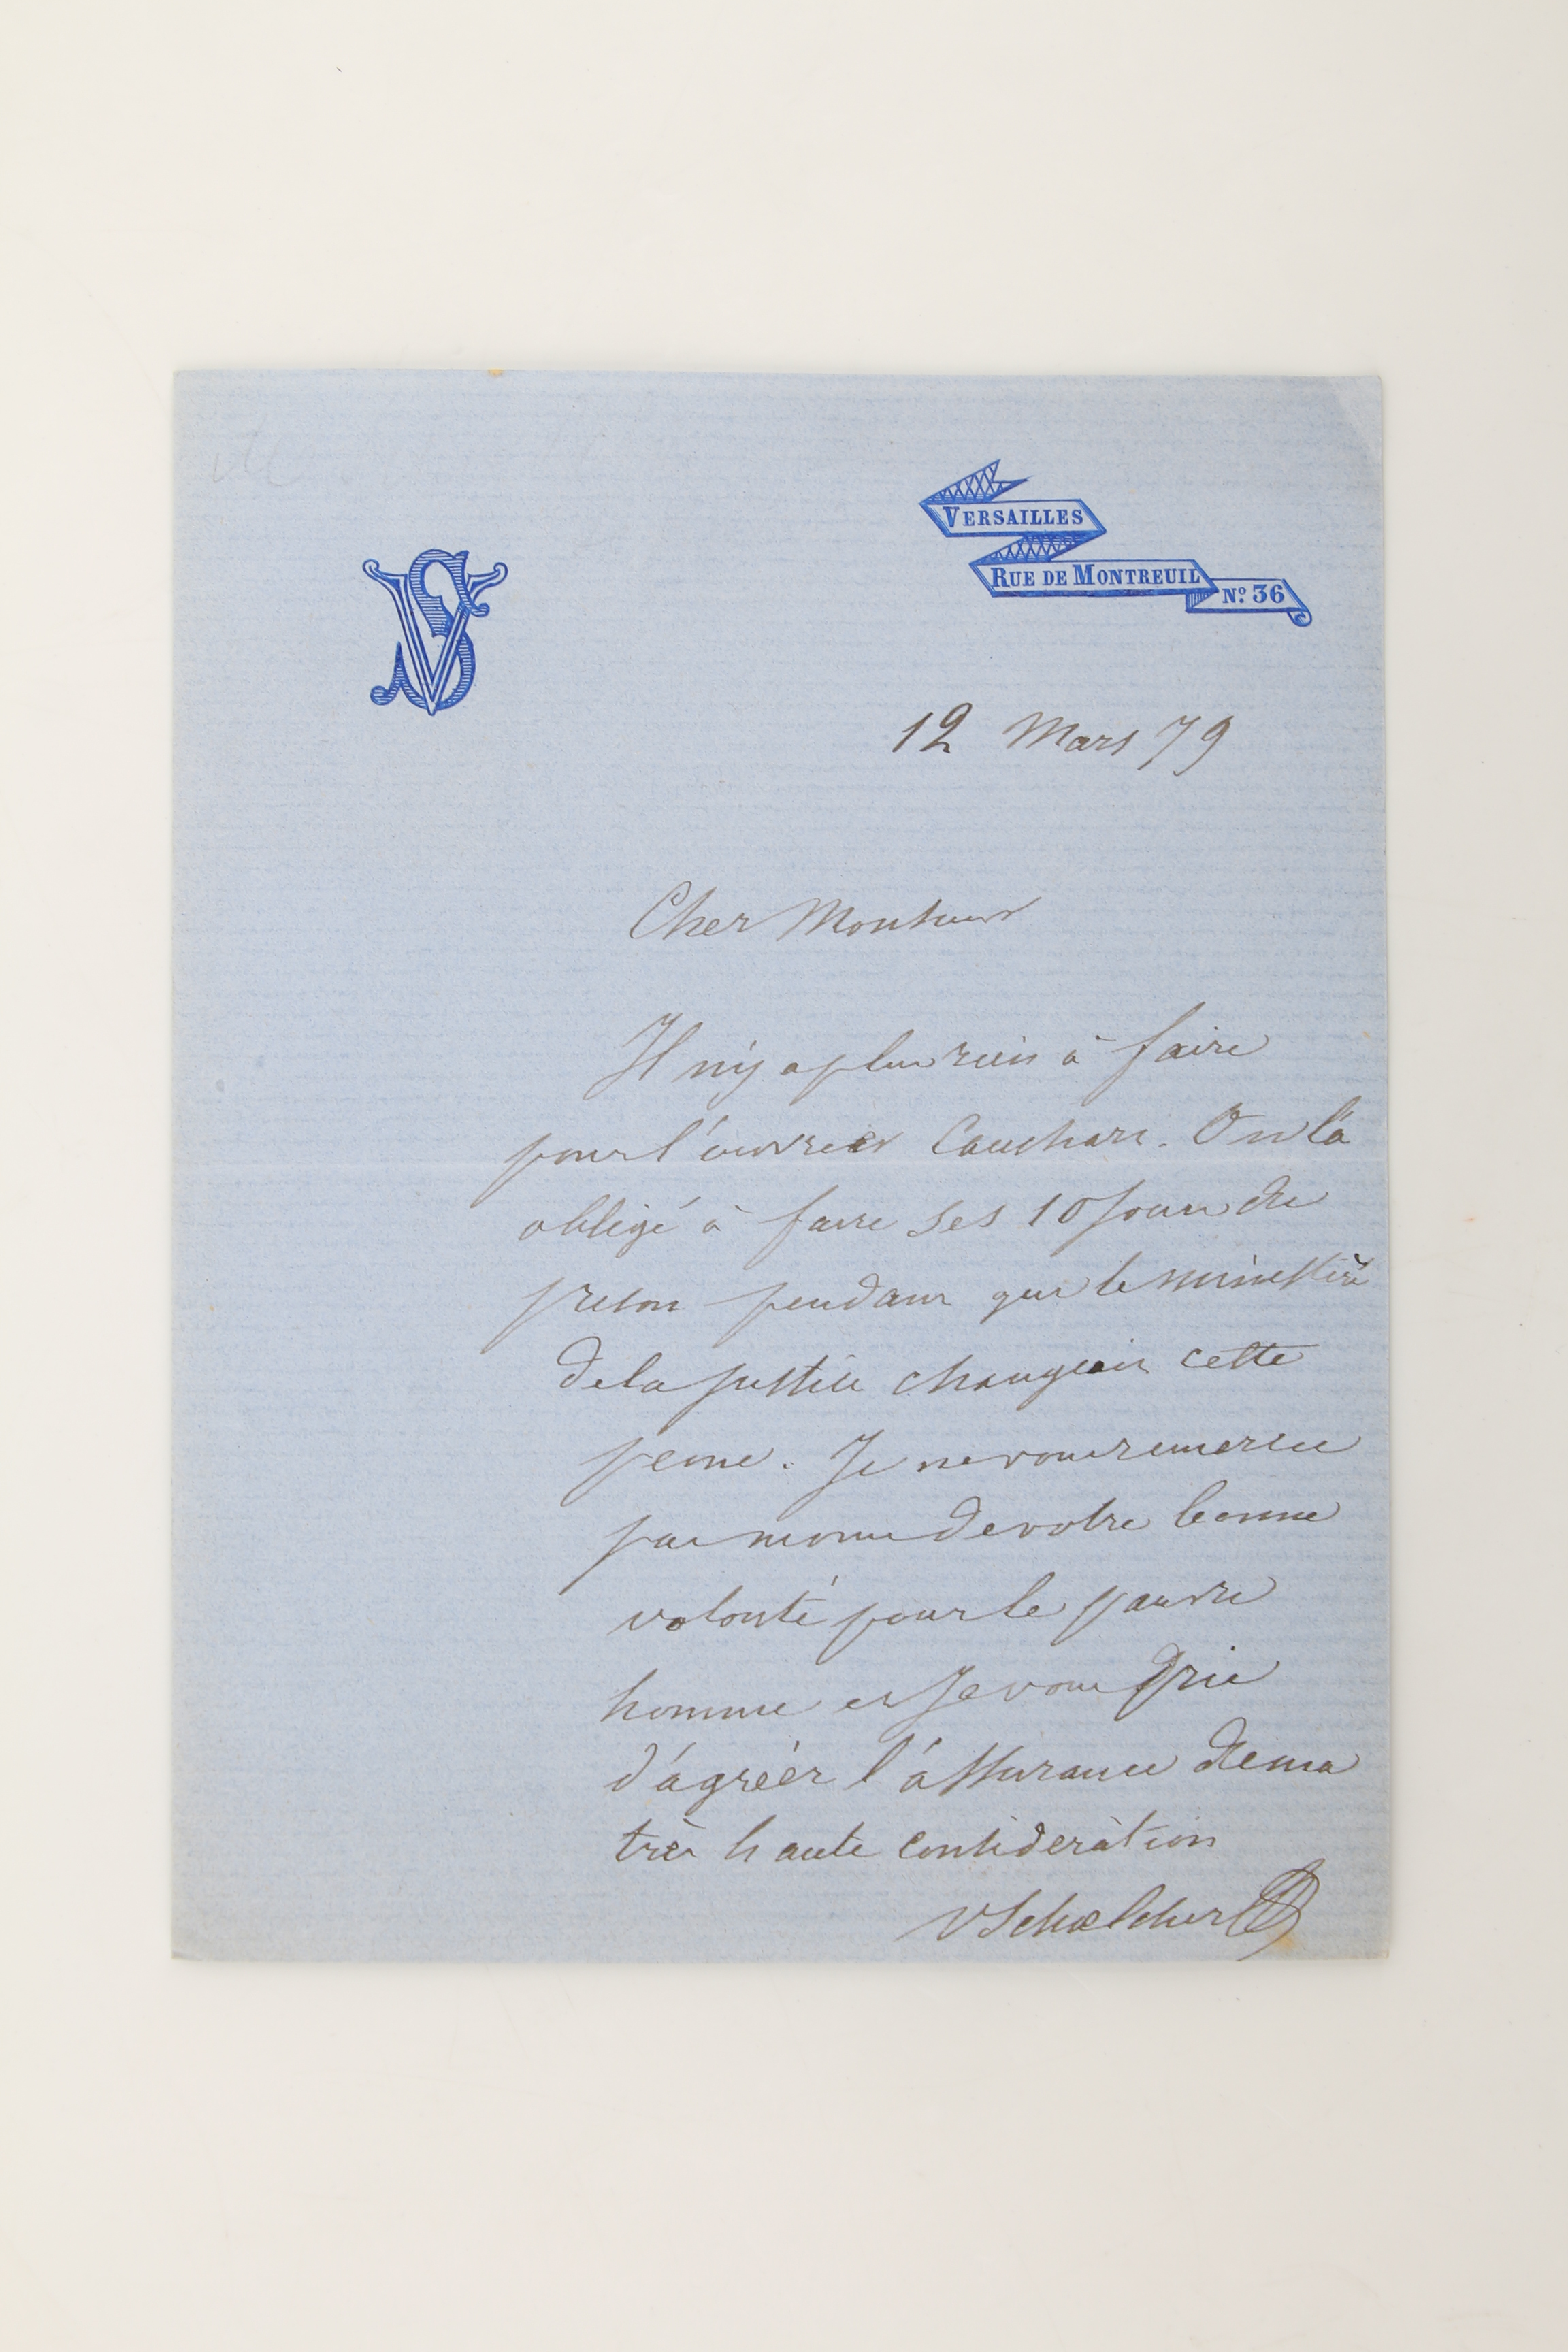 VS
VERSAILLES
RUE DE MONTREUIL
Nº 36
12 Mars 79
Cher Monsieur
Il n'y a plus rien à faire
pour l'ouvrier. On l'a
obligé à faire ses 10 jours de
prison pendant que le ministère
de la justice changeait cette
peine. Je ne vous remercie
pas moins de votre bonne
volonté pour le pauvre
homme et je vous prie
d'agréer l'assurance de ma
très haute considération
V Schœlcher